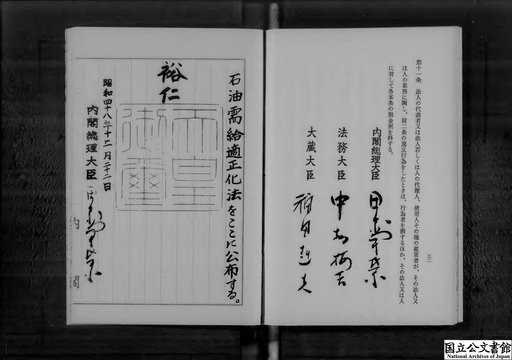 第十一条 法人の代表者又は法人若しくは人の代理人、使用人その他の従業者が、その法人又
は人の業務に関し、前二条の違反行為をしたときは、行為者を罰するほか、その法人又は人
に対して各本条の罰金刑を科する。
内閣総理大臣 田中角栄
法務大臣 中村梅吉
大蔵大臣 福田赳夫
石油需給適正化法をここに公布する。
裕仁
天皇
御璽
昭和四十八年十二月二十二日
内閣総理大臣 田中角栄
内閣
国立公文書館
National Archives of Japan